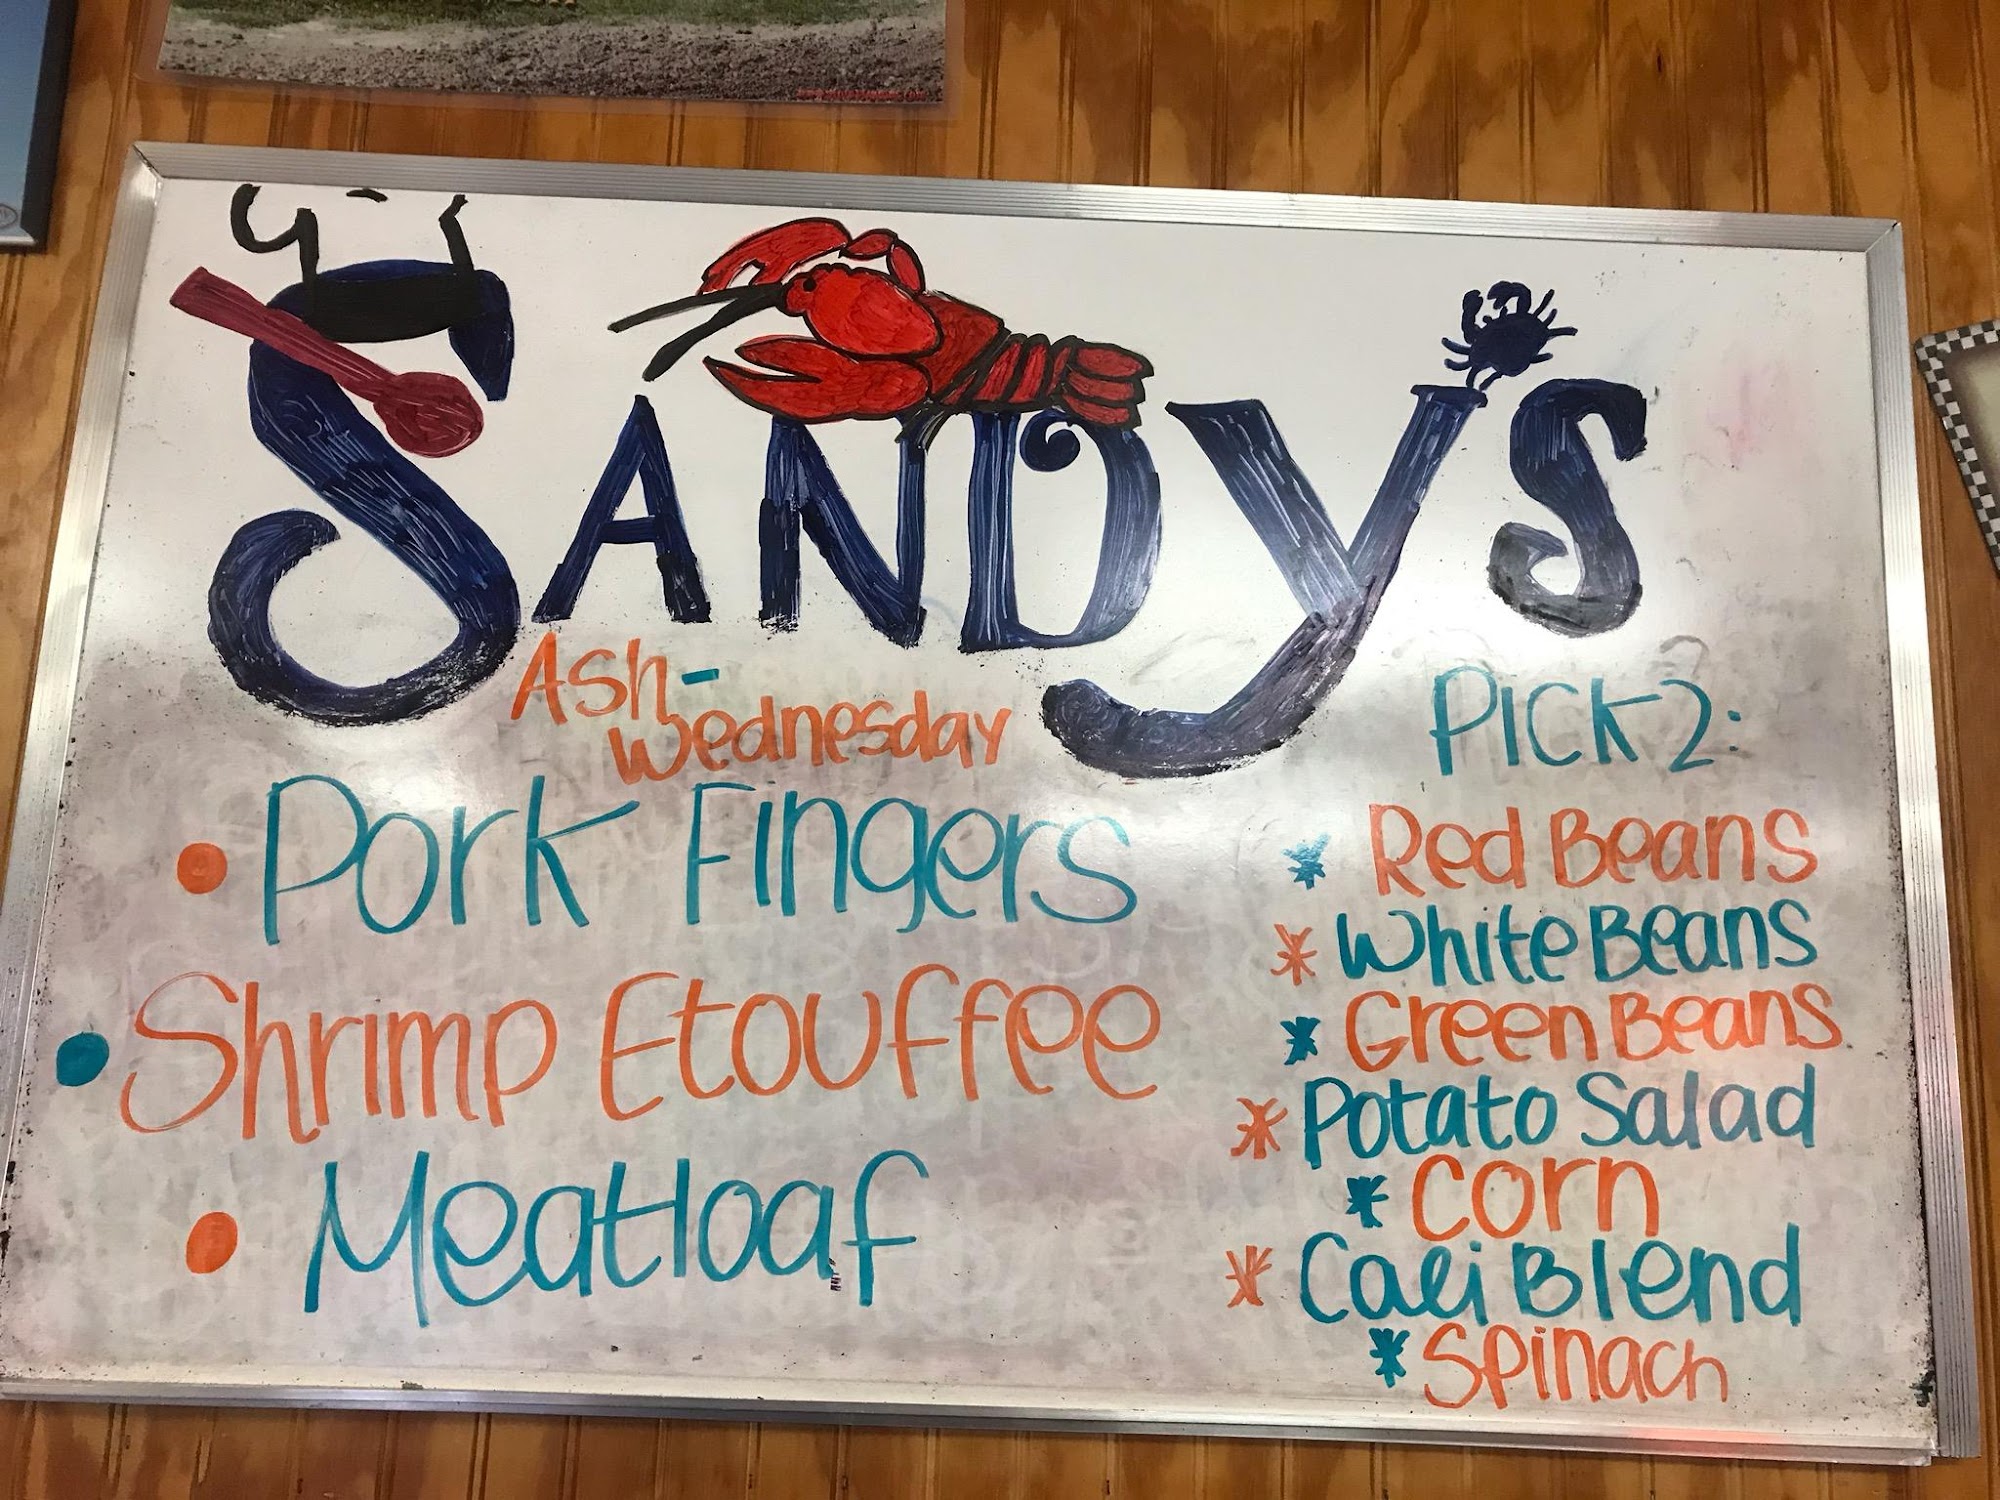 SANDY'S
Ash-
Wednesday
• Pork Fingers
• Shrimp Etouffee
• Meatloaf
PICK 2:
* Red Beans
* White Beans
* Green Beans
* Potato Salad
* Corn
* Cali Blend
* Spinach